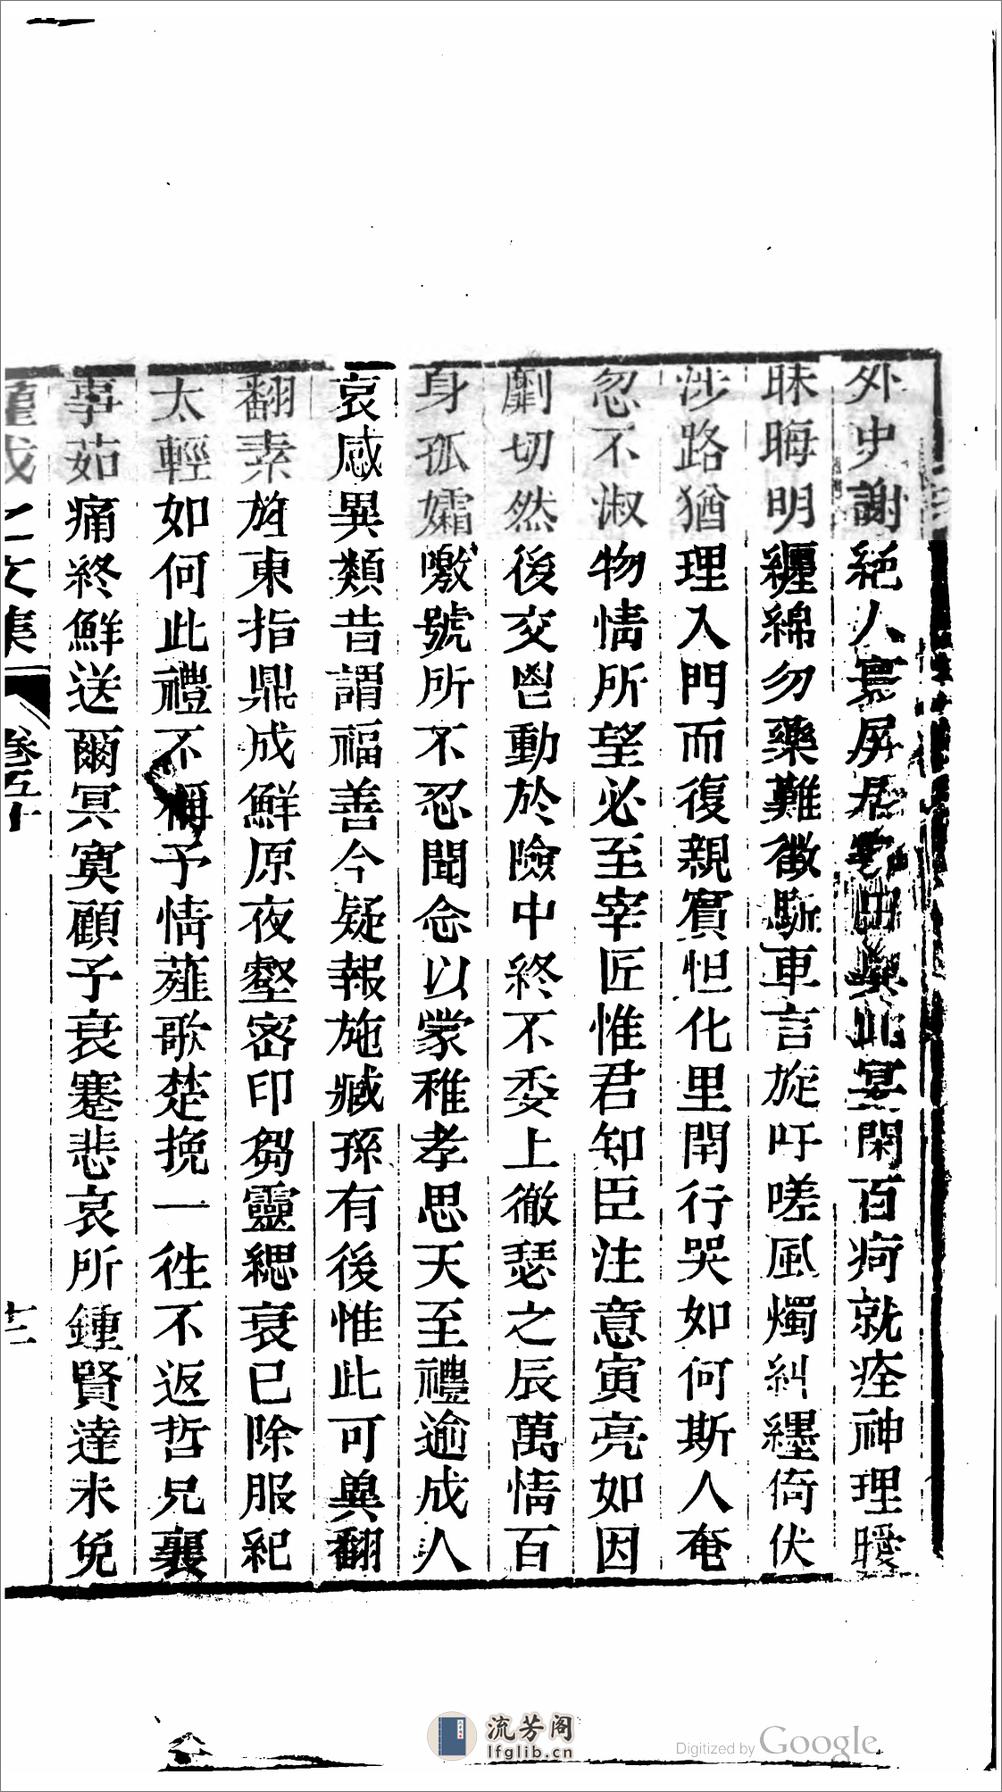 外史謝絕人寰屏居此宴閑百疴就痊神理曖
昧晦明纏綿勿藥難徵馳車言旋吁嗟風燭糾纆倚伏
涉路猶理入門而復親賓怛化里閈行哭如何斯人奄
忽不淑物情所望必至宰匠惟君知臣注意寅亮如因
劘切然後交鬯動於險中終不委上徹瑟之辰萬情百
身孤孀噭號所不忍聞念以蒙稚孝思天至禮逾成人
哀感異類昔謂福善今疑報施臧孫有後惟此可兾翻
翻素旌東指鼎成鮮原夜壑密印芻靈緦衰已除服紀
太輕如何此禮不稱予情薤歌楚挽一徃不返哲兄襄
事茹痛終鮮送爾冥寞顧予衰蹇悲哀所鍾賢達未免
之文集 卷五十 十二
流芳阁
lfglib.cn
Digitized by Google